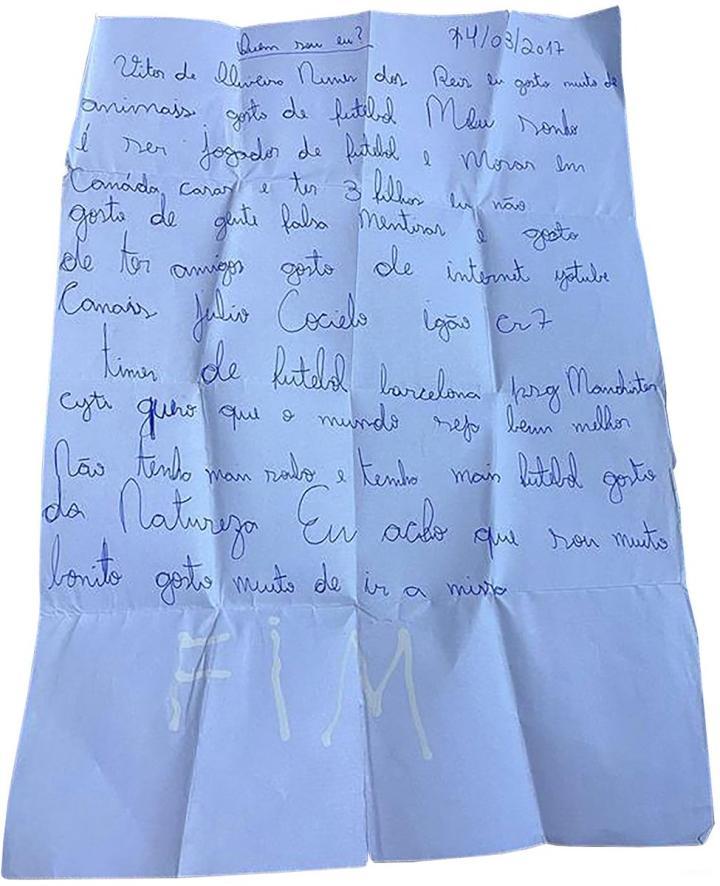 Quem sou eu? 14/03/2017
Vitor de Oliveira Nunes dos Reis eu gosto muito de
animais gosto de futebol Meu sonho
é ser jogador de futebol e Morar em
Canáda casar e ter 3 filhos eu não
gosto de gente falsa Mentiras e gosto
de ter amigos gosto de internet yotube
Canais Julio Cocielo igão cr7
times de futebol barcelona psg Manchiter
cyti quero que o mundo seja bem melhor
Não tenha mais robo e tenha mais futebol gosto
da Natureza Eu acho que sou muito
bonito gosto muito de ir a missa
FIM